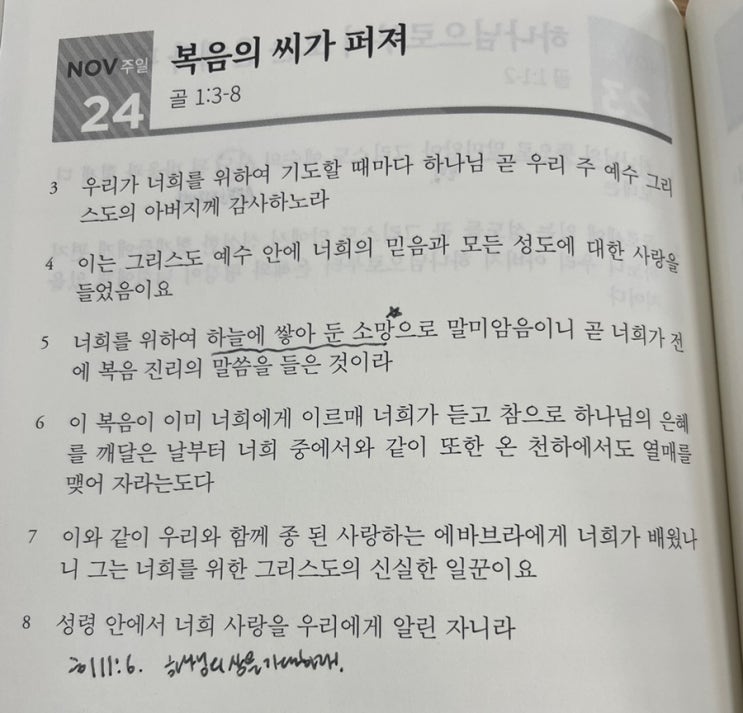 NOV 주일
24
복음의 씨가 퍼져
골 1:3-8
3 우리가 너희를 위하여 기도할 때마다 하나님 곧 우리 주 예수 그리
스도의 아버지께 감사하노라
4 이는 그리스도 예수 안에 너희의 믿음과 모든 성도에 대한 사랑을
들었음이요
5 너희를 위하여 하늘에 쌓아 둔 소망으로 말미암음이니 곧 너희가 전
에 복음 진리의 말씀을 들은 것이라
6 이 복음이 이미 너희에게 이르매 너희가 듣고 참으로 하나님의 은혜
를 깨달은 날부터 너희 중에서와 같이 또한 온 천하에서도 열매를
맺어 자라는도다
7 이와 같이 우리와 함께 종 된 사랑하는 에바브라에게 너희가 배웠나
니 그는 너희를 위한 그리스도의 신실한 일꾼이요
8 성령 안에서 너희 사랑을 우리에게 알린 자니라
11:6.